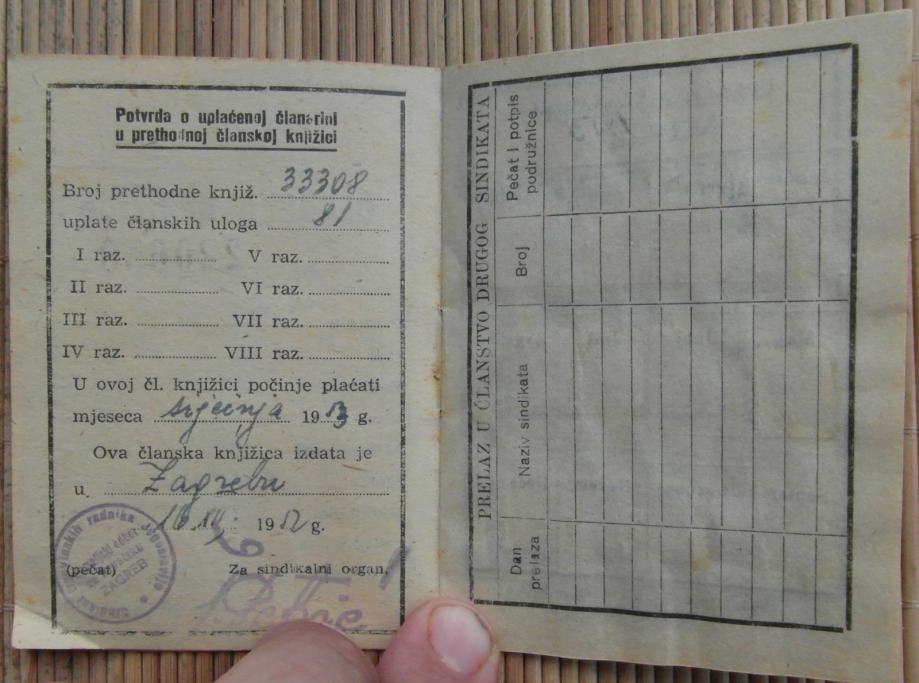 Potvrda o uplaćenoj članarini
u prethodnoj članskoj knjižici
Broj prethodne knjiž. 33308
uplate članskih uloga 81
I raz. V raz.
II raz. VI raz.
III raz. VII raz.
IV raz. VIII raz.
U ovoj čl. knjižici počinje plaćati
mjeseca siječnja 1953 g.
Ova članska knjižica izdata je
u Zagrebu
16 XII 1952 g.
(pečat) Za sindikalni organ,
radnika Jugoslavije
ZAGREB
PRELAZ U ČLANSTVO DRUGOG SINDIKATA
Pečat i potpis
podružnice
Broj
Naziv sindikata
Dan
prelaza